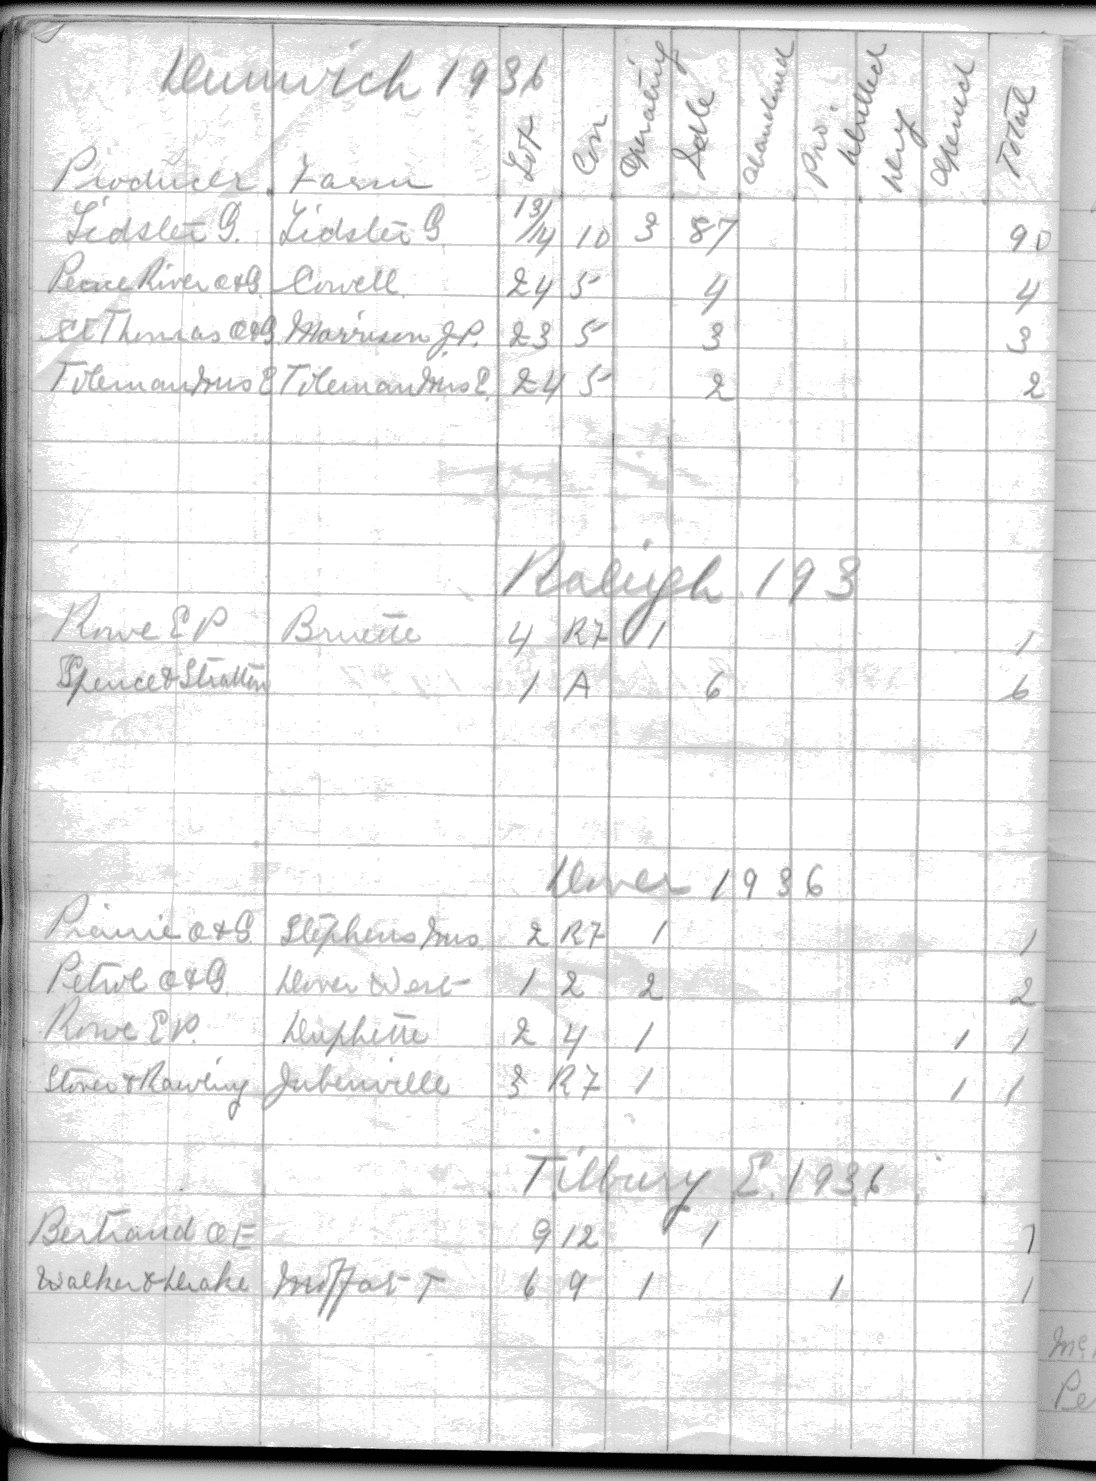 Dunwich 1936
Producer Farm Lot Con Operating Idle Abandoned Pro. Drilled Dry Opened Total
Lidster G. Lidster G 13/14 10 3 87 90
Peace River O&G. Cowell 24 5 4 4
St Thomas O&G Morrison J.P. 23 5 3 3
Tileman Mrs E Tileman Mrs E. 24 5 2 2
Raleigh 193
Rowe E P Bruette 4 R7 1 1
Spence & Stratton 1 A 6 6
Dover 1936
Prairie O&G. Stephens Mrs 2 R7 1 1
Petrol O&G. Dover West 1 2 2 2
Rowe E P. Duphette 2 4 1 1 1
Stover & Rawling Jubenville 3 R7 1 1 1
Tilbury E. 1936
Bertrand O E 9 12 1 1
Walker & Drake Moffat T 6 9 1 1 1
Pe